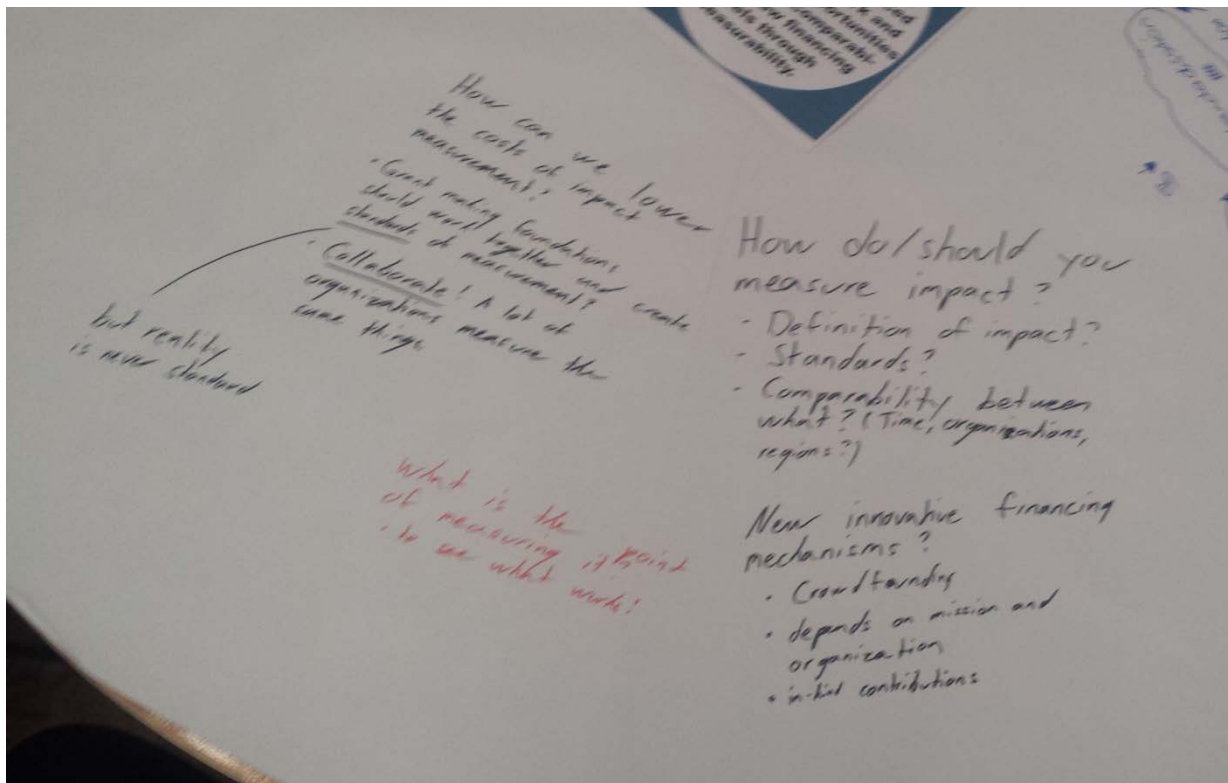 k and
ortunities
comparabi-
w financing
ls through
asurability.
How can we lower
the costs of impact
measurement?
· Grant making foundations
should work together and create
standards of measurement?
· Collaborate! A lot of
organizations measure the
same things
but reality
is never standard
What is the point
of measuring it?
· to see what works!
How do/should you
measure impact?
- Definition of impact?
- Standards?
- Comparability between
what? (Time, organizations,
regions?)
New innovative financing
mechanisms?
· Crowdfounding
· depends on mission and
organization
· in-kind contributions